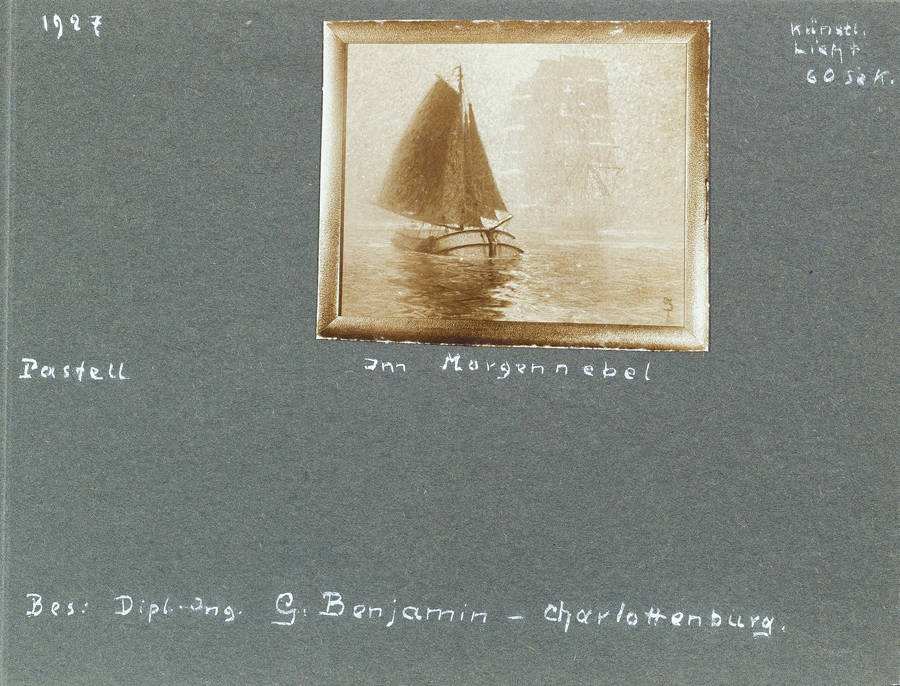 1927
Künstl.
Licht
60 Sek.
Pastell
Im Morgennebel
Bes: Dipl.-Ing. G. Benjamin – Charlottenburg.